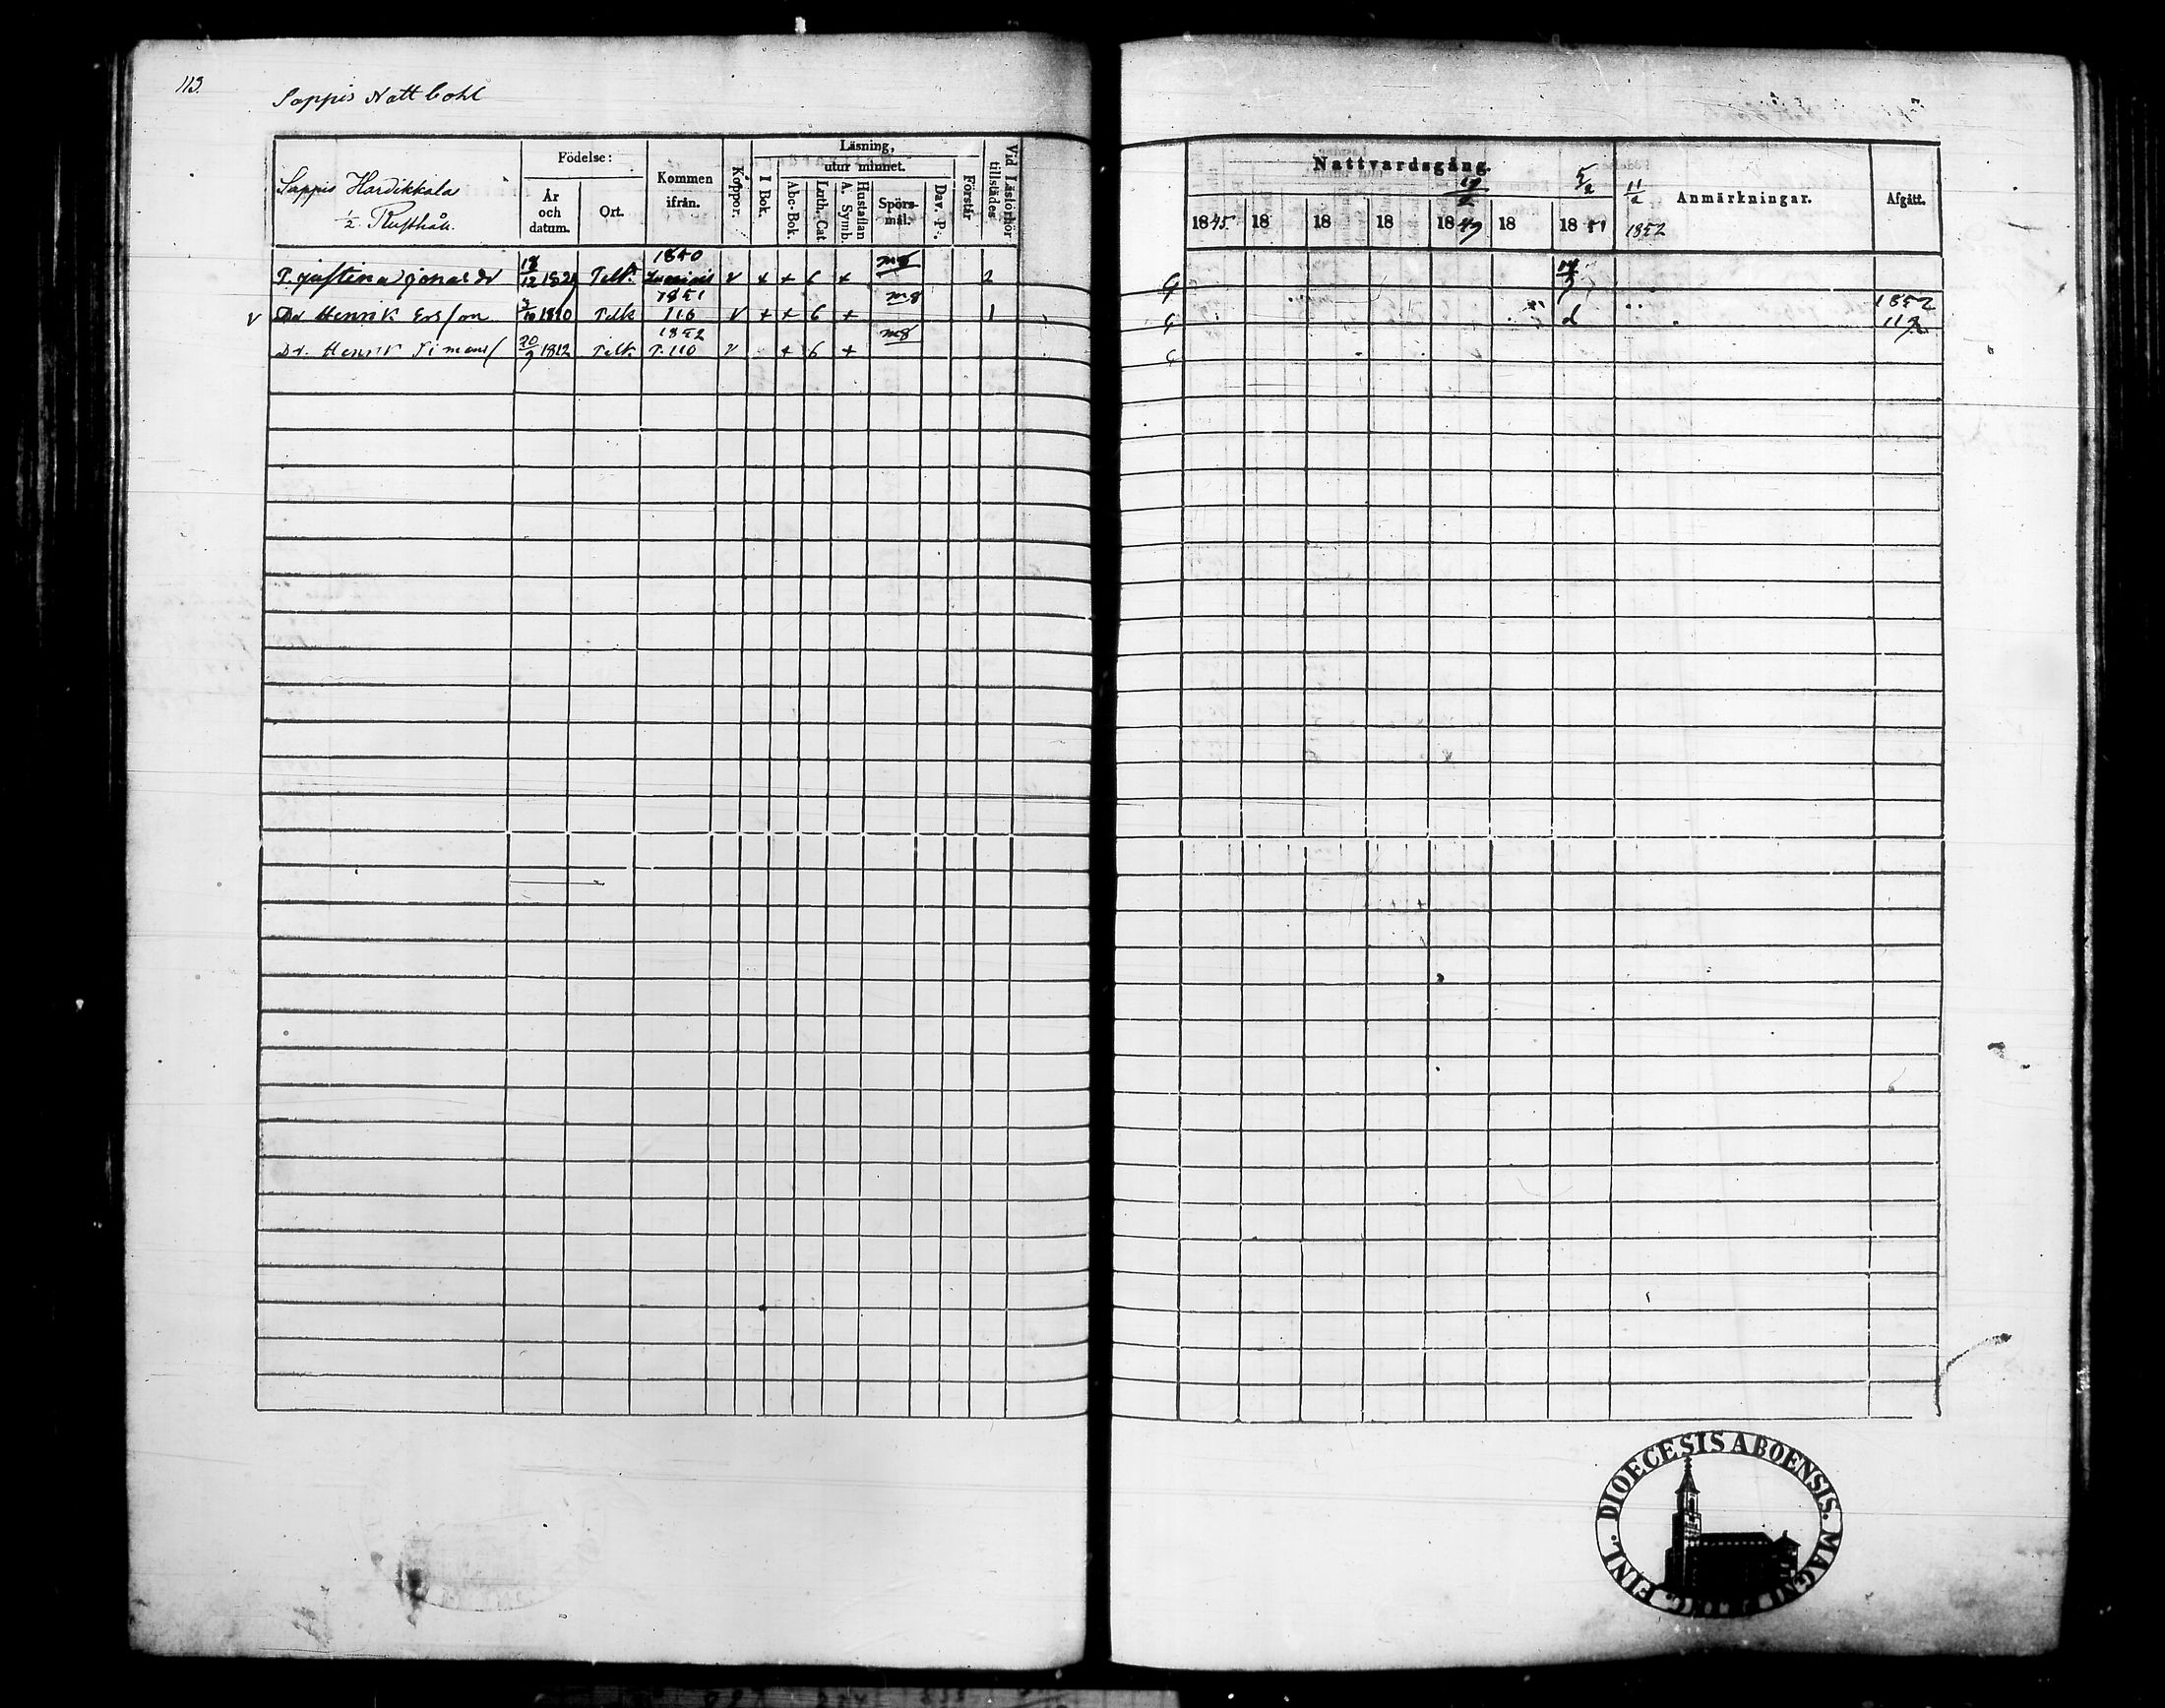 113.
Sappis Nattbohl
Sappis Hardikkala
1/2 Rusthåll
Födelse:
År och datum.
Ort.
Kommen ifrån.
Koppor.
Läsning,
I Bok.
utur minnet.
Abc-Bok.
Luth. Cat.
Hustaflan A. Symb.
Spörsmål.
Dav. P.
Förstår
Vid Läsförhör tillstädes
Nattvardsgång.
1845. 18 18 18 1849 18 1851
5/2
11/2 1852
Anmärkningar.
Afgått.
P. Justina Jonasdr 18/12 1829 1850 v + + 6 + m8 2 G
Dr Henrik Ersson 1810 Pelk 1851 116 v + + 6 + m8 1 G d 1852 112
Dr. Henrik Simons 20/9 1812 Pelk. 1852 P. 110 v + 6 + m8 G
DIOECESIS ABOENSIS. MAGNI DUC. FINL.